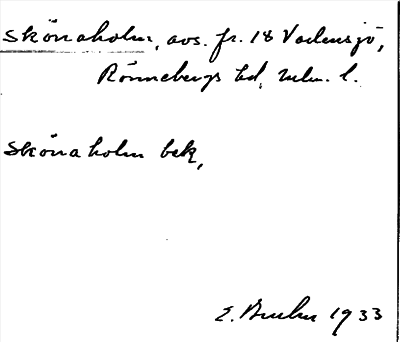 Skönaholm, avs. fr. 18 Vadensjö,
Rönnebergs hd, Mlm. l.
Skönaholm bek,
E. 1933